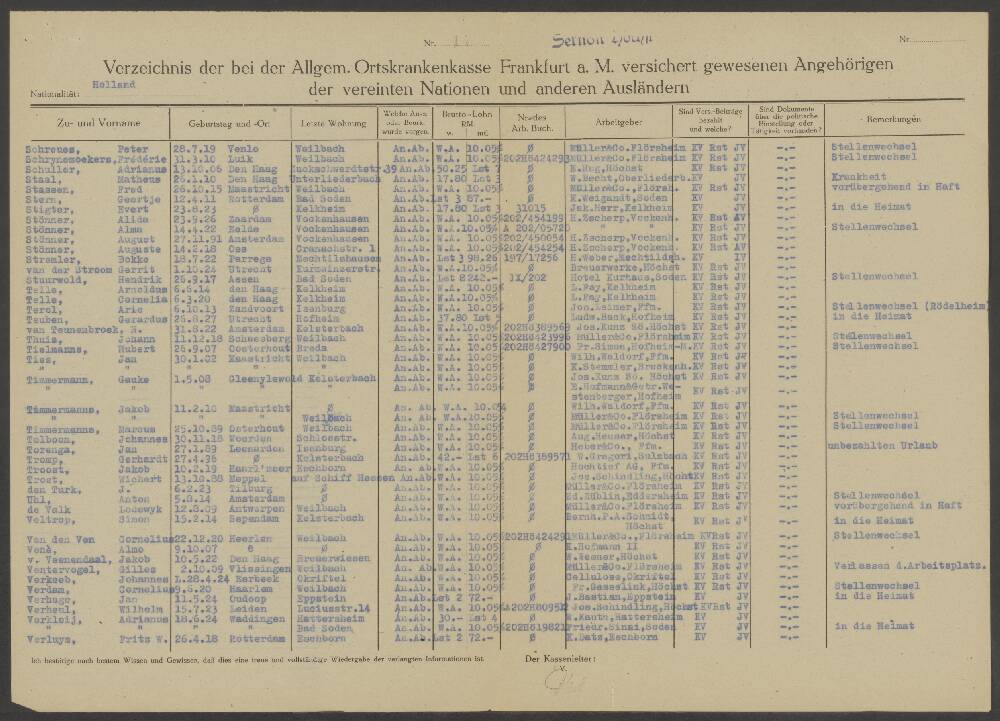 Nr.
Nr.
Verzeichnis der bei der Allgem. Ortskrankenkasse Frankfurt a. M. versichert gewesenen Angehörigen
Nationalität: Holland
der vereinten Nationen und anderen Ausländern
Zu- und Vorname Geburtstag und -Ort Letzte Wohnung Brutto-Lohn RM Arb. Buch. Arbeitgeber Sind Vers.-Beiträge bezahlt und welche? Sind Dokumente über die politische Einstellung oder Tätigkeit vorhanden? Bemerkungen
Schreues, Peter 28.7.19 Venlo Weilbach An.Ab. W.A. 10.05 Ø Müller&Co.Flörsheim KV Rst JV -.- Stellenwechsel
Schrynemoekers, Frédérie 31.3.10 Luik Weilbach An.Ab. W.A. 10.05 202H8424293 Müller&Co.Flörsheim KV Rst JV -.- Stellenwechsel
Schuller, Adrianus 13.10.06 Den Haag An.Ab. 50.25 Lst 7 Ø K.Hug,Höchst KV Rst JV -.-
Staal, Matheus 26.1.10 Den Haag Unterliederbach An.Ab. 17.80 Lst 3 Ø W.Becht,Oberliederb. KV JV -.- Krankheit
Stassen, Fred 26.10.15 Maastricht Weilbach An.Ab. W.A. 10.05 Ø Müller&Co.Flörsh. KV Rst JV -.- vorübergehend in Haft
Stern, Geertje 12.4.11 Rotterdam Bad Soden An.Ab. Lst 3 87.- Ø K.Weigandt,Soden KV JV -.-
Stigter, Evert 23.6.23 Ø Kelkheim An.Ab. 17.80 Lst 3 31015 Jak.Herr,Kelkheim KV JV -.- in die Heimat
Stönner, Alida 23.9.26 Zaardam Vockenhausen An.Ab. W.A. 10.05 202/454199 H.Zscherp,Vockenh. KV Rst AV -.-
Stönner, Alma 14.4.22 Eelde Vockenhausen An.Ab. W.A. 10.05 A 202/05720 " " KV Rst JV -.- Stellenwechsel
Stönner, August 27.11.91 Amsterdam Vockenhausen An.Ab. W.A. 10.05 202/450054 H.Zscherp,Vockenh. KV Rst JV -.-
Stönner, Auguste 14.2.18 Oss Oranenstr. 1 An.Ab. W.A. 10.05 202/454254 H.Zscherp,Vockenh. KV Rst AV -.-
Stramler, Bokke 18.7.22 Parrega Mechtilshausen An.Ab. Lst 3 98.26 197/17256 H.Weber,Mechtildsh. KV IV -.-
van der Stroom Gerrit 1.10.24 Utrecht Kurmainzerstr. An.Ab. W.A. 10.05 Ø Breuerwerke,Höchst KV Rst JV -.-
Stuurwold, Hendrik 26.9.17 Assen Bad Soden An.Ab. Lst 2 242.- IX/202 Hotel Kurhaus,Soden KV Rst JV -.- Stellenwechsel
Telle, Arnoldus 6.6.14 den Haag Kelkheim An.Ab. W.A. 10.05 Ø L.Fay,Kelkheim KV Rst JV -.-
Telle, Cornelia 6.3.20 den Haag Kelkheim An.Ab. W.A. 10.05 Ø L.Fay,Kelkheim KV Rst JV -.-
Terol, Arie 6.10.13 Zandvoort Isenburg An.Ab. W.A. 10.05 Ø Jos.Leimer,Ffm. KV Rst JV -.- Stellenwechsel (Rödelheim)
Teuben, Gerardus 26.8.27 Utrecht Hofheim An.Ab. 37.80 Lst 5 Ø Ludw.Hank,Hofheim KV Rst JV -.- in die Heimat
van Teunenbroek, H. 31.8.22 Amsterdam Kelsterbach An.Ab. W.A. 10.05 202H8389568 Jos.Kunz SG.Höchst KV Rst JV -.-
Thuis, Johann 11.12.18 Schnesberg Weilbach An.Ab. W.A. 10.05 202H8423996 Müller&Co.Flörsheim KV Rst JV -.- Stellenwechsel
Tielmanns, Hubert 26.9.07 Oosterhout Breda An.Ab. W.A. 10.05 202H8427900 Fr.Simon,Hofheim KV Rst JV -.- Stellenwechsel
Ties, Jan 30.1.02 Maastricht Weilbach An.Ab. W.A. 10.05 Ø Wilh.Waldorf,Ffm. KV Rst JV -.-
" " " " An.Ab. W.A. 10.05 Ø K.Stemmler,Bruckenh. KV Rst JV -.-
Timmermann, Gauke 1.5.08 Gleenylewold Kelsterbach An.Ab. W.A. 10.05 Ø Jos.Kunz SG. Höchst KV Rst JV -.-
" " " An.Ab. W.A. 10.05 Ø E.Hofmann&Gebr.We-
stenberger,Hofheim KV Rst JV -.-
Timmermanns, Jakob 11.2.10 Maastricht Ø An.Ab. W.A. 10.05 Ø Wilh.Waldorf,Ffm. KV Rst JV -.-
" " " " Weilbach An.Ab. W.A. 10.05 Ø Müller&Co.Flörsheim KV Rst JV -.- Stellenwechsel
Timmermanns, Marcus 25.10.89 Osterhout Weilbach An.Ab. W.A. 10.05 Ø Müller&Co.Flörsheim KV Rst JV -.- Stellenwechsel
Tolboom, Johannes 30.11.18 Woerden Schlosstr. An.Ab. W.A. 10.05 Ø Aug.Heuser,Höchst KV Rst JV -.-
Torenga, Jan 27.1.89 Leenarden Isenburg An.Ab. W.A. 10.05 Ø Heber&Co., Ffm. KV Rst JV -.- unbezahlten Urlaub
Tromp, Gerhardt 27.4.96 Ø Kelsterbach An.Ab. 42.- Lst 6 202H8389571 W.Gregori,Sulzbach KV Rst JV -.-
Troost, Jakob 10.2.19 Haarl'meer Eschborn An.Ab. W.A. 10.05 Ø Hochtief AG, Ffm. KV Rst JV -.-
Trost, Wichert 13.10.88 Meppel auf Schiff Hessen An.Ab. W.A. 10.05 Ø Jos.Schindling,Höchst KV Rst JV -.-
den Turk, J. 6.2.23 Tilburg Ø An.Ab. W.A. 10.05 Ø Müller&Co.Flörsheim KV Rst JV -.-
Uhl, Anton 5.6.14 Amsterdam Ø An.Ab. W.A. 10.05 Ø Ed.Züblin,Eddersheim KV Rst JV -.- Stellenwechsel
de Valk Lodewyk 12.8.09 Antwerpen Weilbach An.Ab. W.A. 10.05 Ø Müller&Co.Flörsheim KV Rst JV -.- vorübergehend in Haft
Veltrop, Simon 15.2.14 Sependam Kelsterbach An.Ab. W.A. 10.05 Ø Bernh.P.A.Schmidt,
Höchst KV Rst JV -.- in die Heimat
Van den Ven Cornelius 22.12.20 Heerlen Weilbach An.Ab. W.A. 10.05 202H8424291 Müller&Co.Flörsheim KV Rst JV -.- Stellenwechsel
Vené, Almo 9.10.07 Ø An.Ab. W.A. 10.05 Ø K.Hofmann II KV Rst JV -.-
v. Veenendaal, Jakob 10.5.22 Den Haag Breuerwiesen An.Ab. W.A. 10.05 Ø W.Wesner,Höchst KV Rst JV -.-
Ventervogel, Gilles 2.10.09 Vlissingen Weilbach An.Ab. W.A. 10.05 Ø Müller&Co.Flörsheim KV Rst JV -.- Verlassen d.Arbeitsplatz.
Verkeeb, Johannes L. 28.4.24 Herbeek Okriftel An.Ab. W.A. 10.05 Ø Cellulose,Okriftel KV Rst JV -.-
Verdam, Cornelius 9.6.20 Haarlem Weilbach An.Ab. W.A. 10.05 Ø Fr.Gemeelink,Höchst KV Rst JV -.- Stellenwechsel
Verhage, Jan 11.5.24 Oudorp Eppstein An.Ab. Lst 2 72.- Ø J.Bastian,Eppstein KV JV -.- in die Heimat
Verheul, Wilhelm 15.7.23 Leiden Luciusstr.14 An.Ab. W.A. 10.05 A202H80951 Jos.Schindling,Höchst KV Rst JV -.-
Verkleij, Adrianus 18.6.24 Waddingen Hattersheim An.Ab. 30.- Lst 4 Ø W.Kauth,Hattersheim KV JV -.-
" " " " Bad Soden An.Ab. W.A. 10.05 202H8619821 Friedr.Sinai,Soden KV Rst JV -.- in die Heimat
Verluys, Frits W. 26.4.18 Rotterdam Eschborn An.Ab. Lst 2 72.- Ø K.Datz,Eschborn KV JV -.-
Ich bestätige nach bestem Wissen und Gewissen, daß dies eine treue und vollständige Wiedergabe der verlangten Informationen ist. Der Kassenleiter: